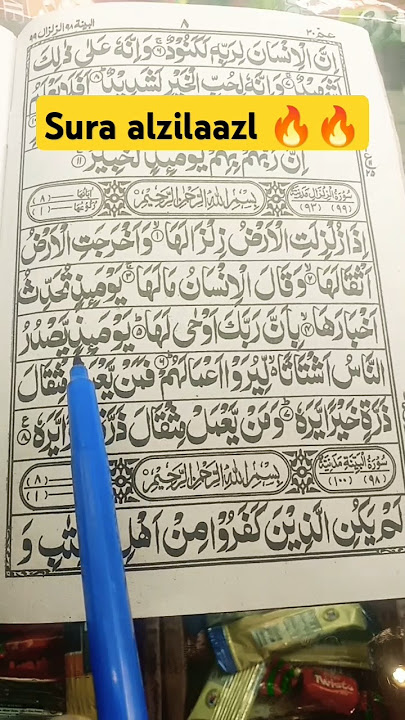 عم ٣٠ ٨ البينة ٩٨ الزلزال ٩٩
اِنَّ الْاِنْسَانَ لِرَبِّهٖ لَكَنُوْدٌ ۶ وَاِنَّهٗ عَلٰى ذٰلِكَ
لَشَهِيْدٌ ۷ وَاِنَّهٗ لِحُبِّ الْخَيْرِ لَشَدِيْدٌ ۸ اَفَلَا يَعْلَمُ
Sura alzilaazl 🔥🔥
اِنَّ رَبَّهُمْ بِهِمْ يَوْمَئِذٍ لَّخَبِيْرٌ ۱۱
سُوْرَةُ الزِّلْزَالِ مَدَنِيَّةٌ (٩٩) (٩٣) بِسْمِ اللّٰهِ الرَّحْمٰنِ الرَّحِيْمِ اٰيَاتُهَا (٨) رُكُوْعُهَا (١)
اِذَا زُلْزِلَتِ الْاَرْضُ زِلْزَالَهَا ۱ وَاَخْرَجَتِ الْاَرْضُ
اَثْقَالَهَا ۲ وَقَالَ الْاِنْسَانُ مَا لَهَا ۳ يَوْمَئِذٍ تُحَدِّثُ
اَخْبَارَهَا ۴ بِاَنَّ رَبَّكَ اَوْحٰى لَهَا ۵ يَوْمَئِذٍ يَّصْدُرُ
النَّاسُ اَشْتَاتًا لِّيُرَوْا اَعْمَالَهُمْ ۶ فَمَنْ يَّعْمَلْ مِثْقَالَ
ذَرَّةٍ خَيْرًا يَّرَهٗ ۷ وَمَنْ يَّعْمَلْ مِثْقَالَ ذَرَّةٍ شَرًّا يَّرَهٗ ۸
سُوْرَةُ الْبَيِّنَةِ مَدَنِيَّةٌ (٩٨) (١٠٠) بِسْمِ اللّٰهِ الرَّحْمٰنِ الرَّحِيْمِ (٨) (١)
لَمْ يَكُنِ الَّذِيْنَ كَفَرُوْا مِنْ اَهْلِ الْكِتٰبِ وَ
Twists